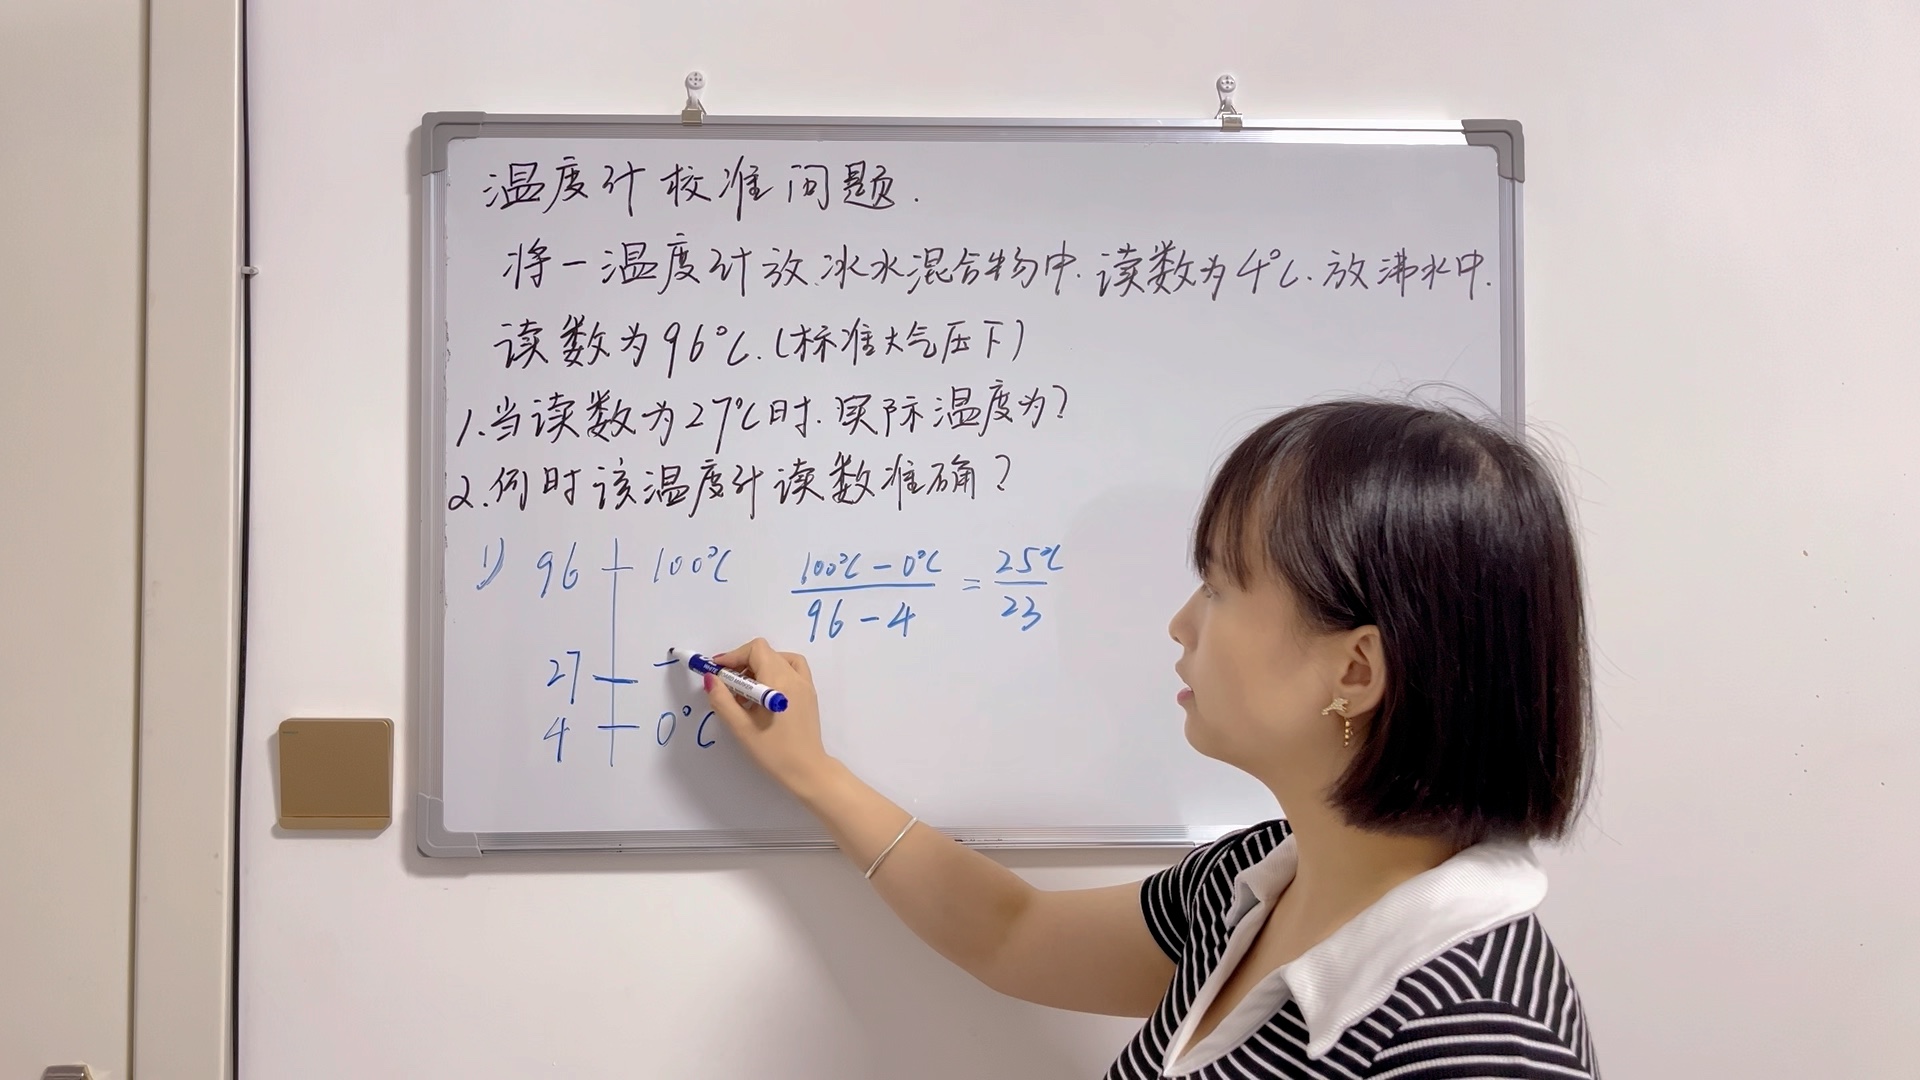 温度计校准问题.
将一温度计放冰水混合物中.读数为4℃.放沸水中.
读数为96℃.(标准大气压下)
1.当读数为27℃时.实际温度为?
2.何时该温度计读数准确?
1) 96 100℃
27
4 0℃
100℃-0℃
96-4
=
25℃
23